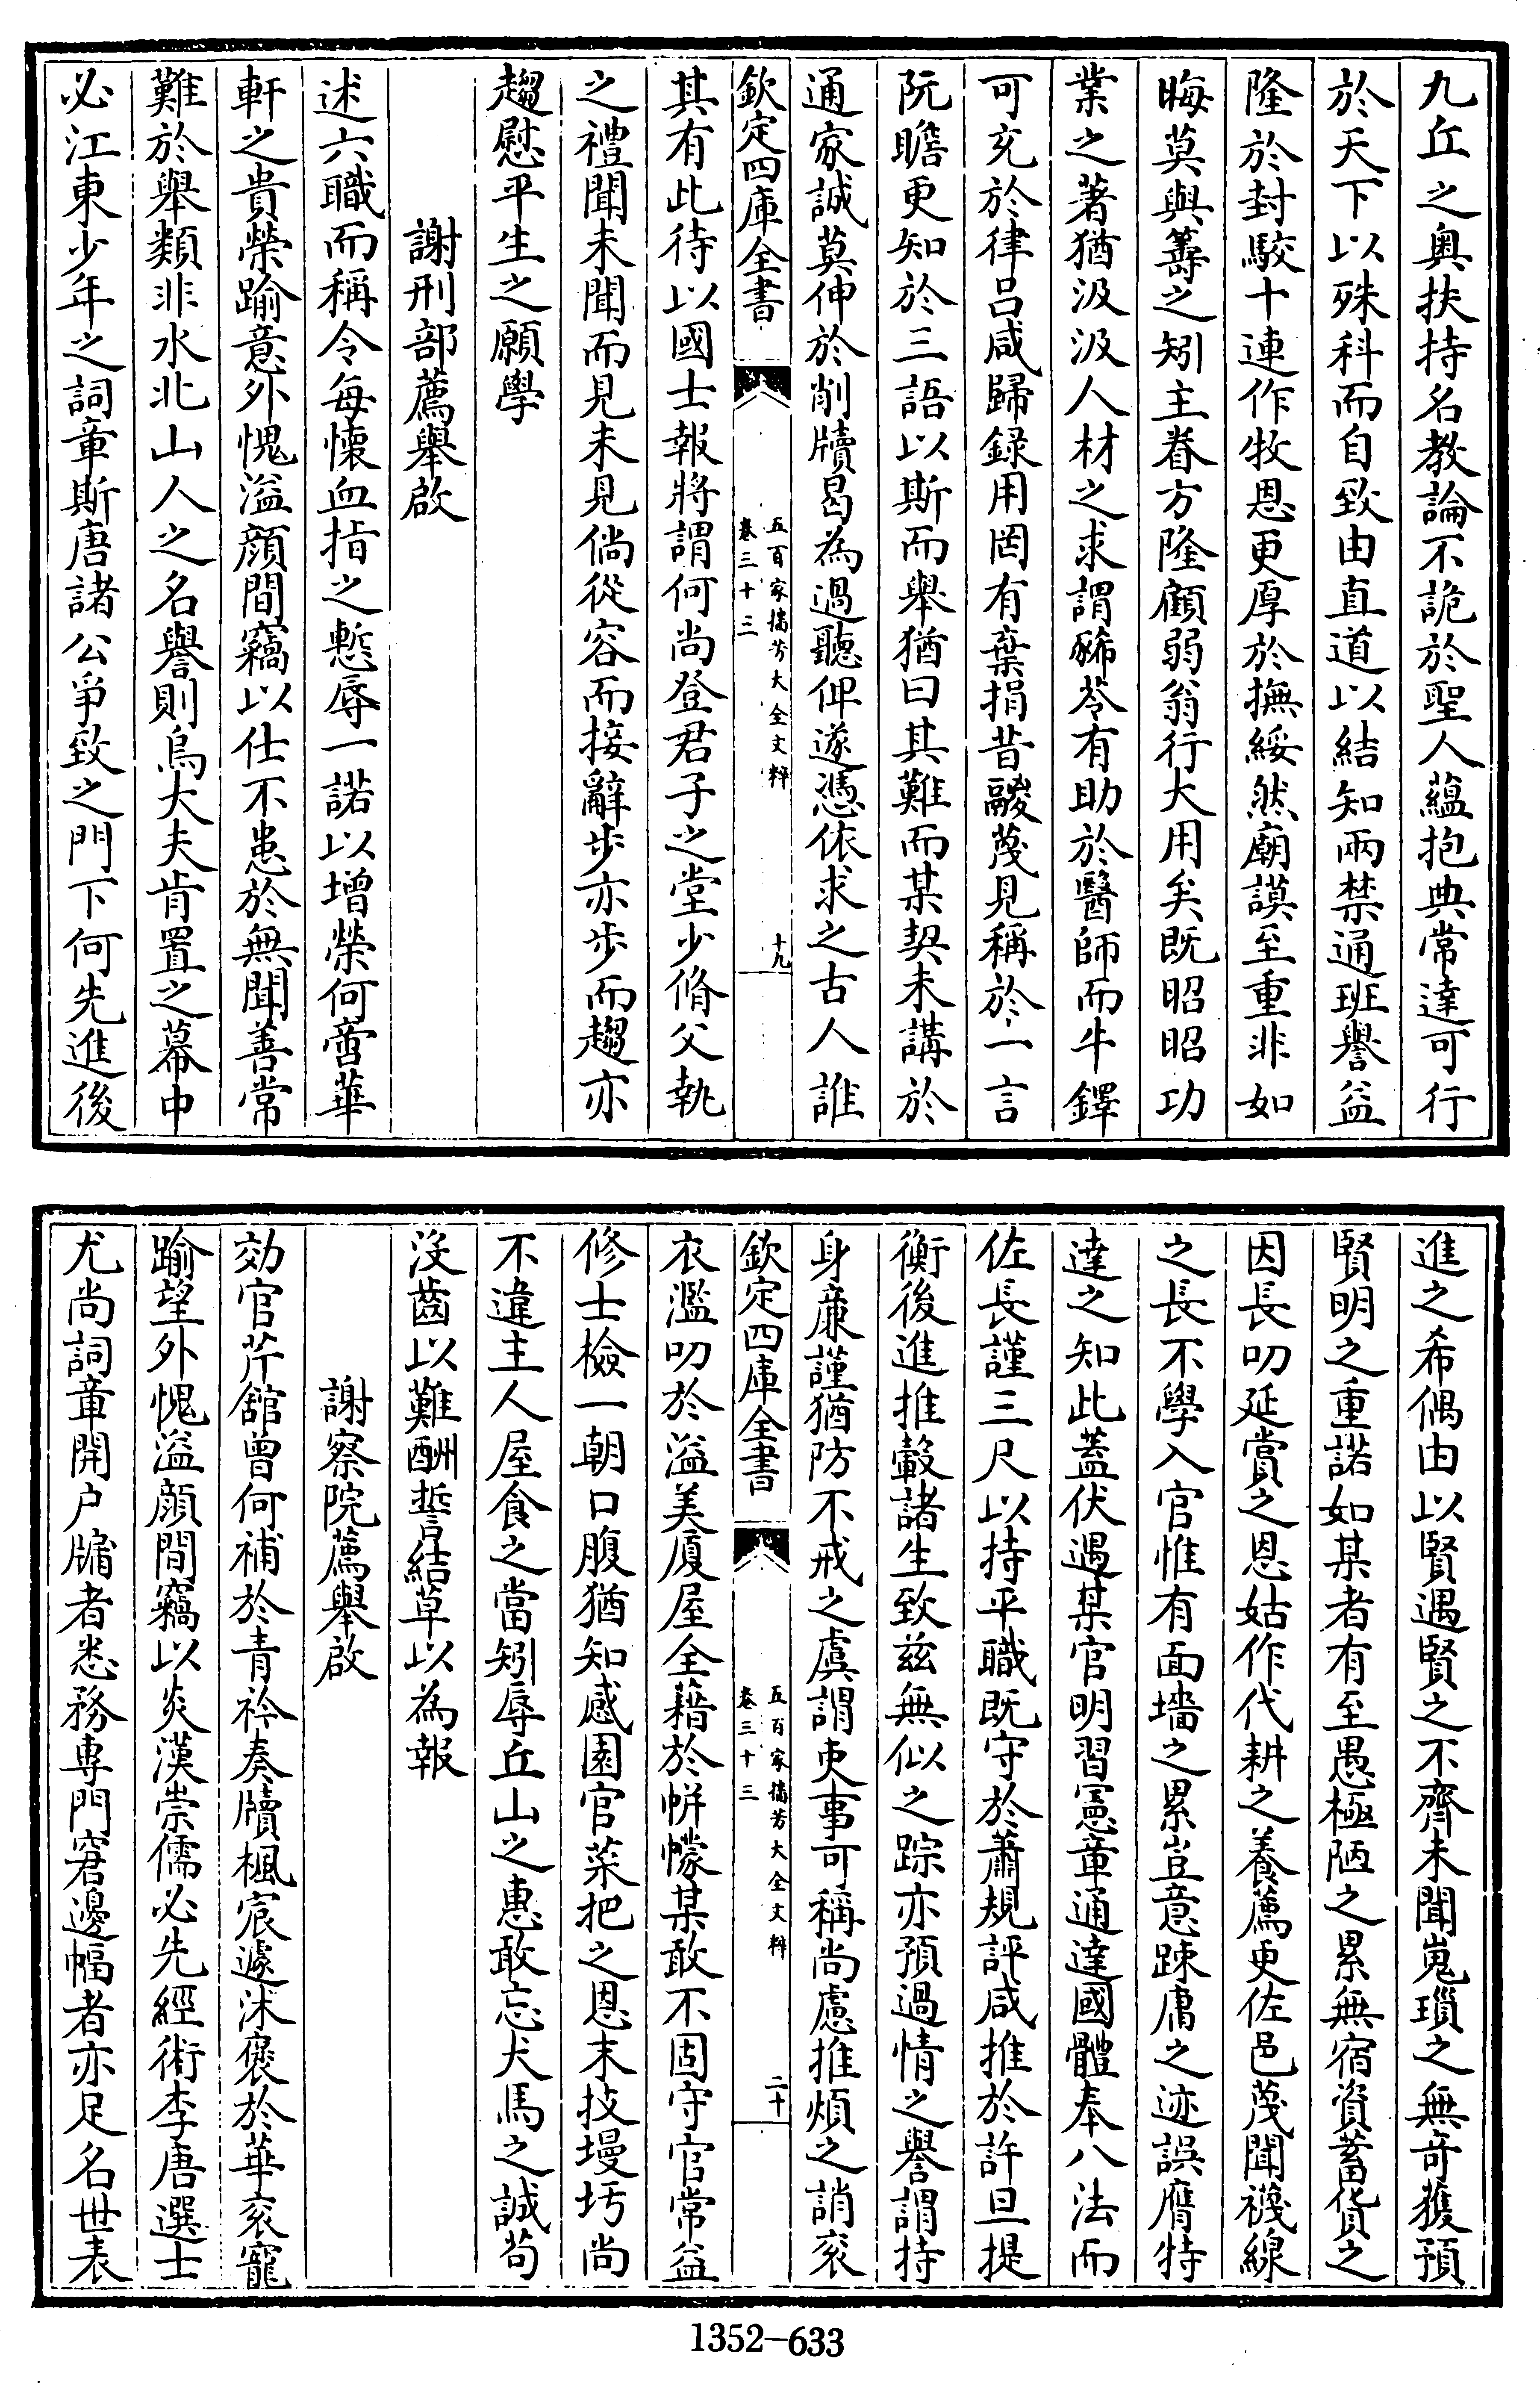 九丘之奥扶持名教論不詭於聖人蘊抱典常達可行
於天下以殊科而自致由直道以結知兩禁通班譽益
隆於封駮十連作牧恩更厚於撫綏然廟謨至重非如
晦莫與籌之矧主眷方隆顧弱翁行大用矣既昭昭功
業之著猶汲汲人材之求謂豨苓有助於醫師而牛鐸
可充於律呂咸歸録用罔有棄捐昔鬷蔑見稱於一言
阮瞻更知於三語以斯而舉猶曰其難而某契未講於
通家誠莫伸於削牘曷為過聽俾遂憑依求之古人誰
欽定四庫全書
五百家播芳大全文粹
卷三十三
十九
其有此待以國士報將謂何尚登君子之堂少脩父執
之禮聞未聞而見未見倘從容而接辭步亦步而趨亦
趨慰平生之願學
謝刑部薦舉啟
述六職而稱令每懐血指之慙辱一諾以增榮何啻華
軒之貴榮踰意外愧溢顔間竊以仕不患於無聞善常
難於舉類非水北山人之名譽則烏大夫肯置之幕中
必江東少年之詞章斯唐諸公爭致之門下何先進後
進之希偶由以賢遇賢之不齊未聞嵬瑣之無竒獲預
賢明之重諾如某者有至愚極陋之累無宿資蓄貨之
因長叨延賞之恩姑作代耕之養薦更佐邑蔑聞襪線
之長不學入官惟有面墻之累豈意踈庸之迹誤膺特
達之知此蓋伏遇某官明習憲章通達國體奉八法而
佐長謹三尺以持平職既守於蕭規評咸推於許旦提
衡後進推轂諸生致兹無似之踪亦預過情之譽謂持
身廉謹猶防不戒之虞謂吏事可稱尚慮推煩之誚衮
欽定四庫全書
五百家播芳大全文粹
卷三十三
二十
衣濫叨於溢美厦屋全藉於帡幪某敢不固守官常益
修士檢一朝口腹猶知感園官菜把之恩末技墁圬尚
不違主人屋食之當矧辱丘山之惠敢忘犬馬之誠茍
沒齒以難酬誓結草以為報
謝察院薦舉啟
効官芹舘曾何補於青衿奏牘楓宸遽沭褒於華衮寵
踰望外愧溢顔間竊以炎漢崇儒必先經術李唐選士
尤尚詞章開户牖者悉務専門窘邊幅者亦足名世表
1352—633